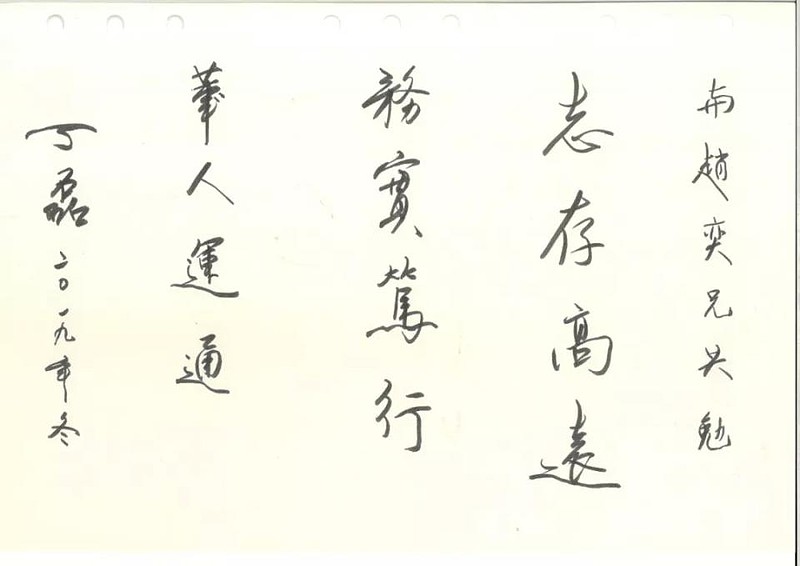 与趙奕兄共勉
志存高遠
務實篤行
華人運通
丁磊二〇一九年冬